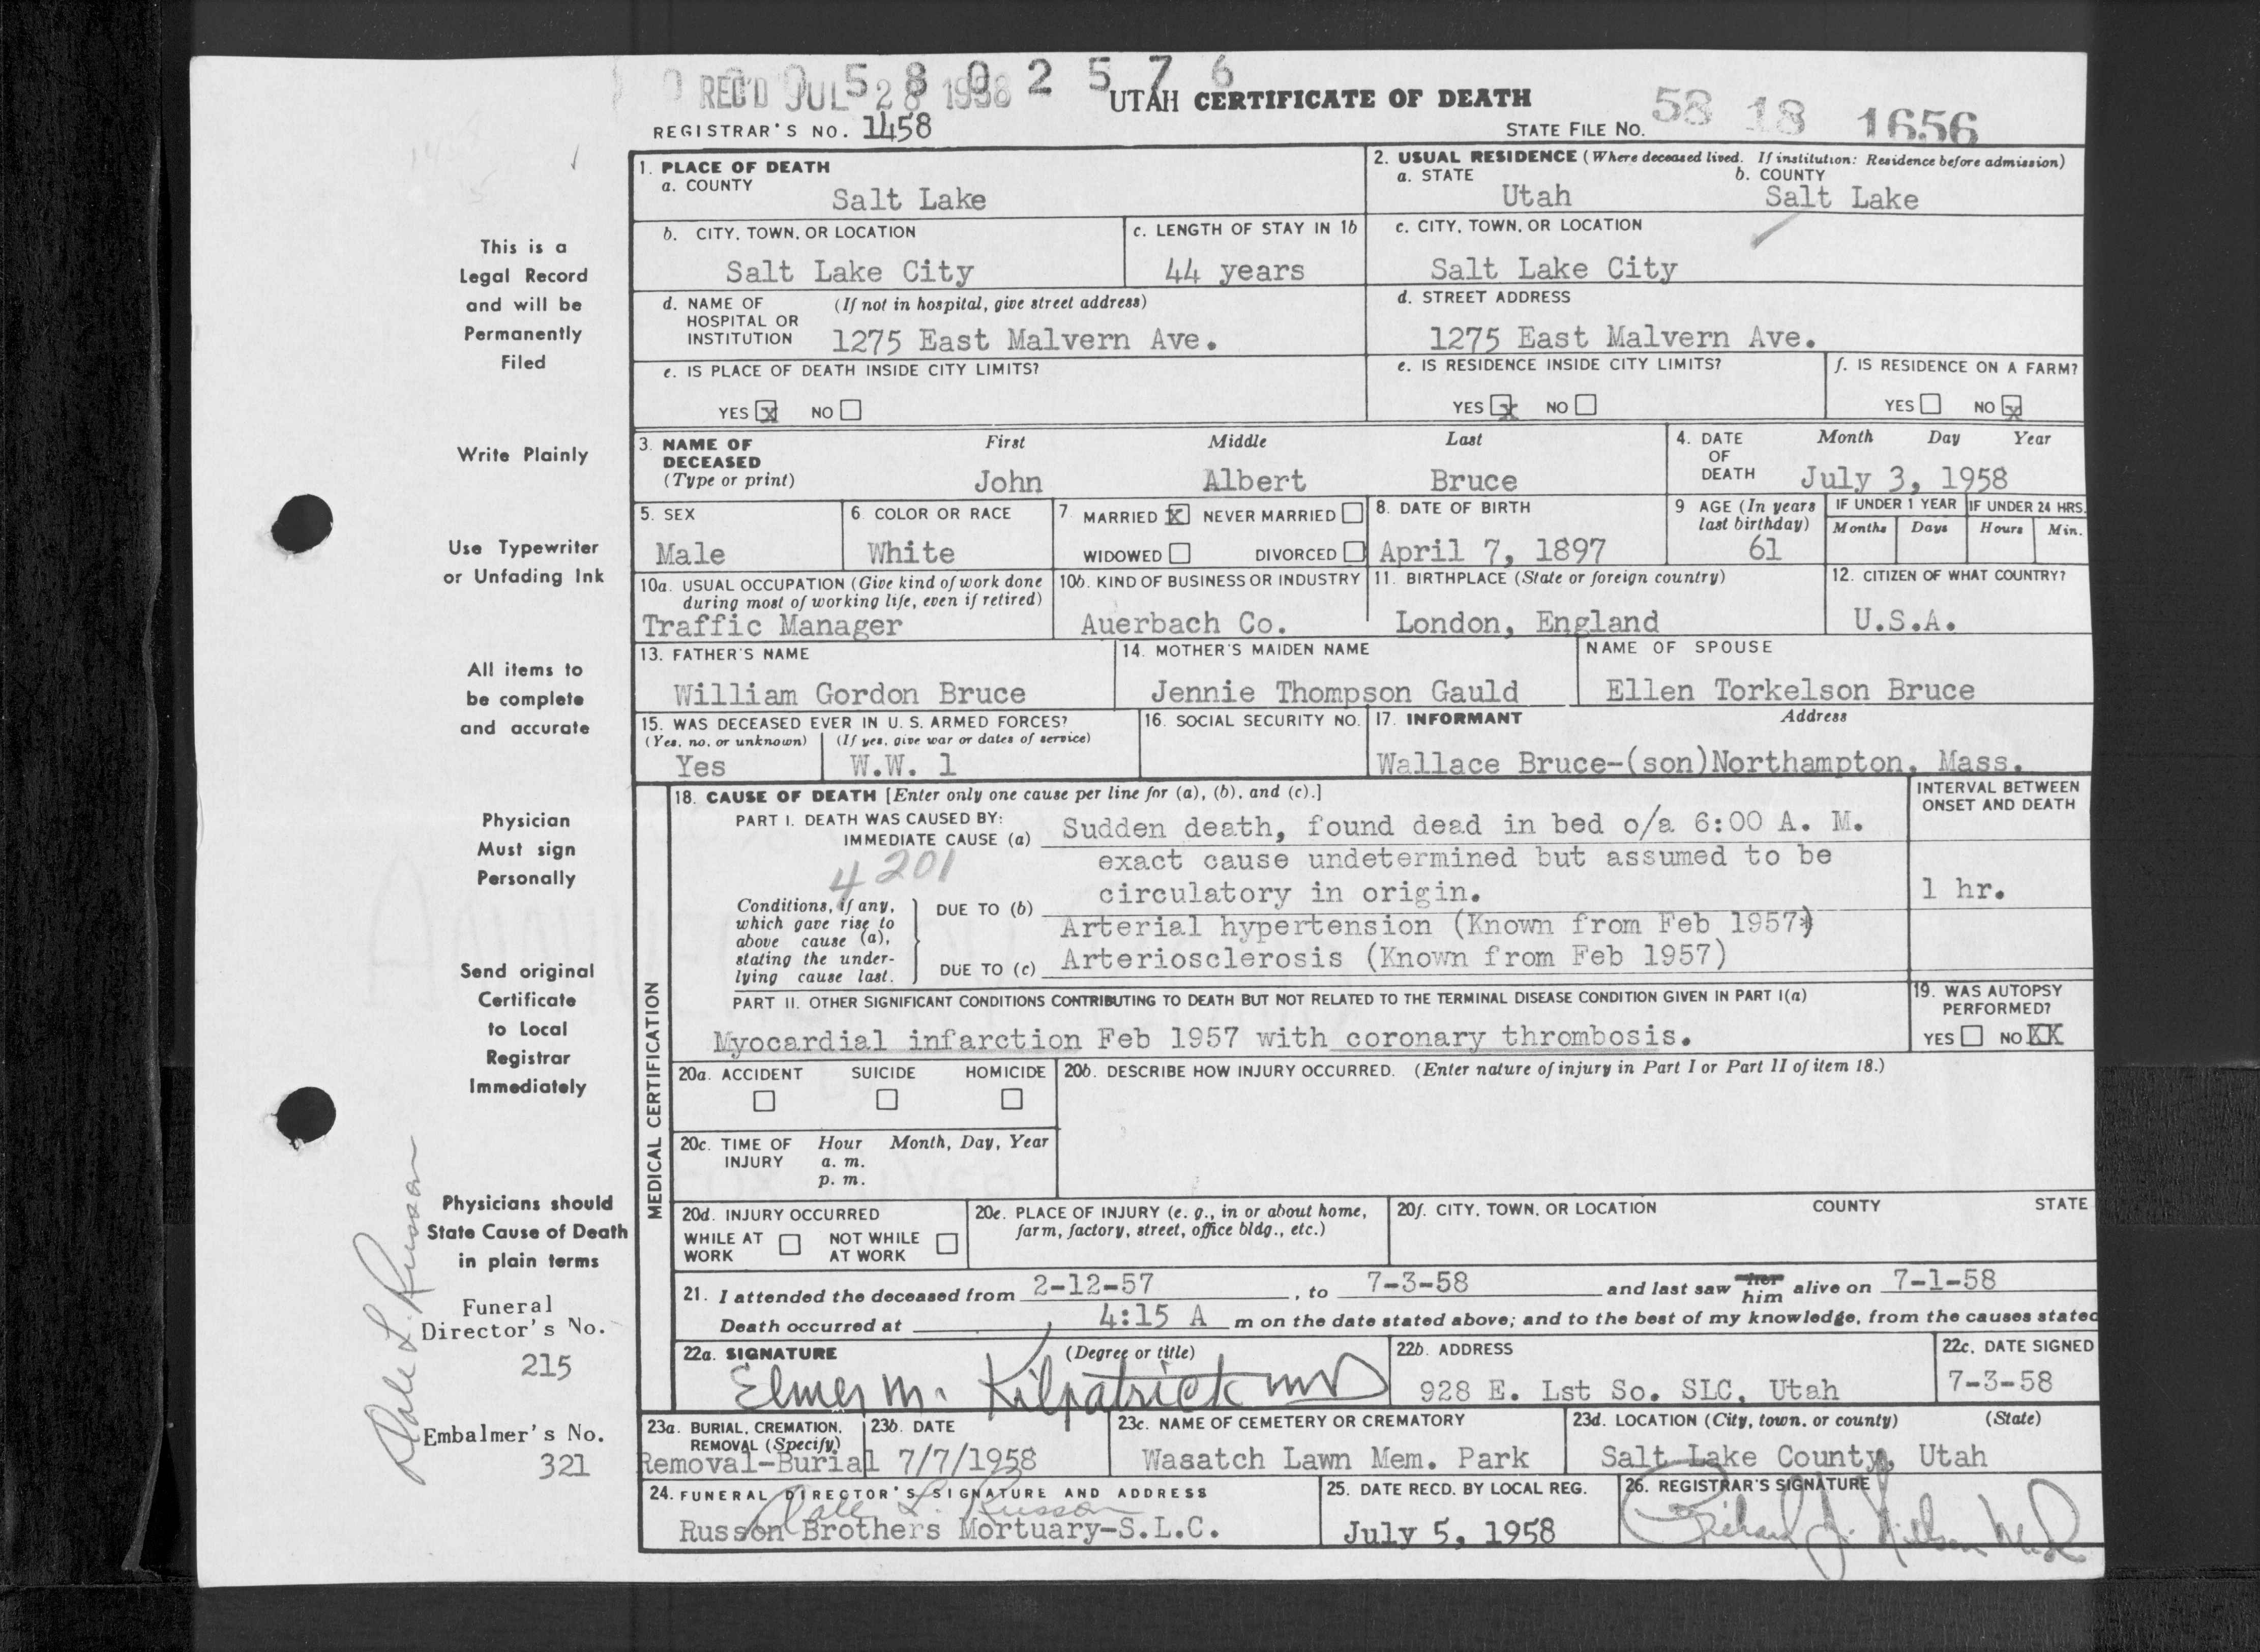 0 0 0 5 8 0 2 5 7 6
REC'D JUL 28 1958
UTAH CERTIFICATE OF DEATH
REGISTRAR'S NO. 1458
STATE FILE NO. 58 18 1656
1. PLACE OF DEATH
a. COUNTY
Salt Lake
2. USUAL RESIDENCE (Where deceased lived. If institution: Residence before admission)
a. STATE b. COUNTY
Utah Salt Lake
b. CITY, TOWN, OR LOCATION
Salt Lake City
c. LENGTH OF STAY IN 1b
44 years
c. CITY, TOWN, OR LOCATION
Salt Lake City
d. NAME OF (If not in hospital, give street address)
HOSPITAL OR
INSTITUTION 1275 East Malvern Ave.
d. STREET ADDRESS
1275 East Malvern Ave.
e. IS PLACE OF DEATH INSIDE CITY LIMITS?
YES x NO
e. IS RESIDENCE INSIDE CITY LIMITS?
YES x NO
f. IS RESIDENCE ON A FARM?
YES NO x
3. NAME OF DECEASED (Type or print)
First Middle Last
John Albert Bruce
4. DATE OF DEATH
Month Day Year
July 3, 1958
5. SEX
Male
6 COLOR OR RACE
White
7 MARRIED X NEVER MARRIED
WIDOWED DIVORCED
8. DATE OF BIRTH
April 7, 1897
9 AGE (In years
last birthday)
61
IF UNDER 1 YEAR IF UNDER 24 HRS.
Months Days Hours Min.
10a. USUAL OCCUPATION (Give kind of work done
during most of working life, even if retired)
Traffic Manager
10b. KIND OF BUSINESS OR INDUSTRY
Auerbach Co.
11. BIRTHPLACE (State or foreign country)
London, England
12. CITIZEN OF WHAT COUNTRY?
U.S.A.
13. FATHER'S NAME
William Gordon Bruce
14. MOTHER'S MAIDEN NAME
Jennie Thompson Gauld
NAME OF SPOUSE
Ellen Torkelson Bruce
15. WAS DECEASED EVER IN U. S. ARMED FORCES?
(Yes, no, or unknown) (If yes, give war or dates of service)
Yes W.W. 1
16. SOCIAL SECURITY NO.
17. INFORMANT Address
Wallace Bruce-(son)Northampton, Mass.
MEDICAL CERTIFICATION
18. CAUSE OF DEATH [Enter only one cause per line for (a), (b), and (c).]
INTERVAL BETWEEN
ONSET AND DEATH
PART I. DEATH WAS CAUSED BY:
IMMEDIATE CAUSE (a) Sudden death, found dead in bed o/a 6:00 A. M.
exact cause undetermined but assumed to be
4201
circulatory in origin.
1 hr.
Conditions, if any,
which gave rise to
above cause (a),
stating the under-
lying cause last.
DUE TO (b)
Arterial hypertension (Known from Feb 1957)
DUE TO (c) Arteriosclerosis (Known from Feb 1957)
PART II. OTHER SIGNIFICANT CONDITIONS CONTRIBUTING TO DEATH BUT NOT RELATED TO THE TERMINAL DISEASE CONDITION GIVEN IN PART I(a)
Myocardial infarction Feb 1957 with coronary thrombosis.
19. WAS AUTOPSY
PERFORMED?
YES NO XX
20a. ACCIDENT SUICIDE HOMICIDE
20b. DESCRIBE HOW INJURY OCCURRED. (Enter nature of injury in Part I or Part II of item 18.)
20c. TIME OF INJURY
Hour Month, Day, Year
a. m.
p. m.
20d. INJURY OCCURRED
WHILE AT WORK
NOT WHILE AT WORK
20e. PLACE OF INJURY (e. g., in or about home,
farm, factory, street, office bldg., etc.)
20f. CITY, TOWN, OR LOCATION COUNTY STATE
21. I attended the deceased from 2-12-57, to 7-3-58 and last saw her him alive on 7-1-58
Death occurred at 4:15 A m on the date stated above; and to the best of my knowledge, from the causes stated
22a. SIGNATURE (Degree or title)
Elmer M. Kilpatrick MD
22b. ADDRESS
928 E. Lst So. SLC, Utah
22c. DATE SIGNED
7-3-58
23a. BURIAL, CREMATION,
REMOVAL (Specify)
Removal-Burial
23b. DATE
7/7/1958
23c. NAME OF CEMETERY OR CREMATORY
Wasatch Lawn Mem. Park
23d. LOCATION (City, town, or county) (State)
Salt Lake County, Utah
24. FUNERAL DIRECTOR'S SIGNATURE AND ADDRESS
Dale L. Russon
Russon Brothers Mortuary-S.L.C.
25. DATE RECD. BY LOCAL REG.
July 5, 1958
26. REGISTRAR'S SIGNATURE
Richard J. Nilson M.D.
This is a
Legal Record
and will be
Permanently
Filed
Write Plainly
Use Typewriter
or Unfading Ink
All items to
be complete
and accurate
Physician
Must sign
Personally
Send original
Certificate
to Local
Registrar
Immediately
Physicians should
State Cause of Death
in plain terms
Funeral
Director's No.
215
Embalmer's No.
321
Dale L. Russon